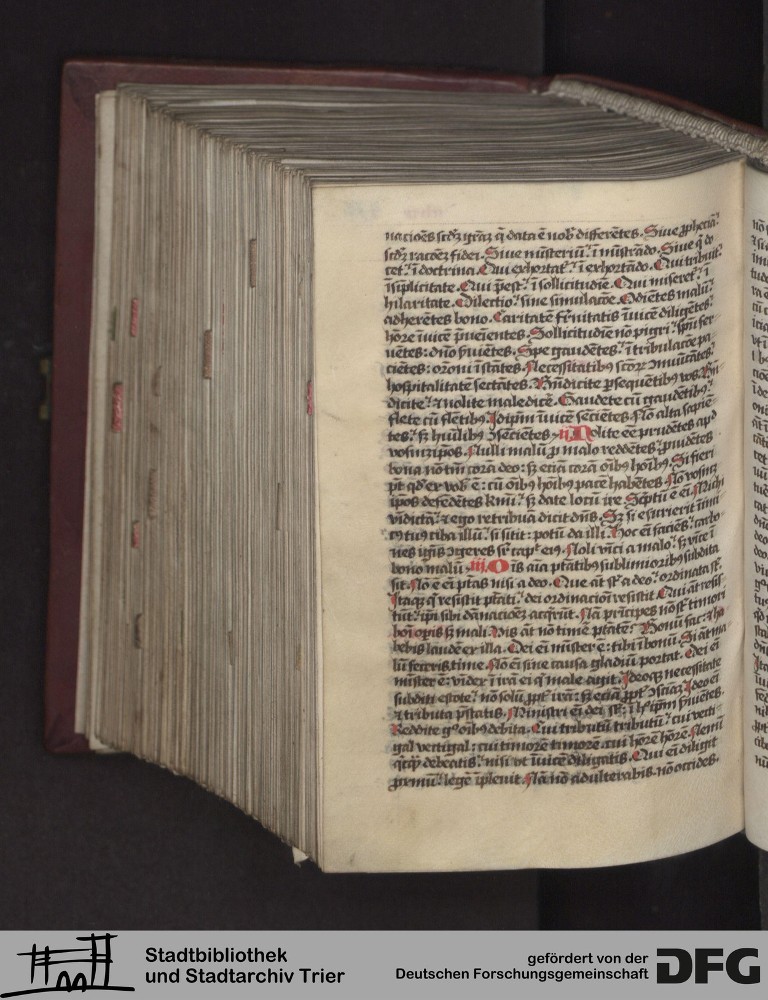 nacioēs scdȝ grāȝ q̄ data ē nob differētes. Siue ꝓpheciā
scdȝ racoēȝ fidei. Siue misteriū ī mistrādo. Siue q̇ do
cet ī doctrina. Qui exhortat ī exhortādo. Qui tribuit
ī sīplicitate. Qui p̄est ī sollicitudīe. Qui miseret ī
hilaritate. Dilectio sine simulacōe. Odiētes malū
adherētes bono. Caritatē frnitatis īuicē diligētes
hōre īuicē p̄ueīentes. Sollicitudīe nō pigri. spū fer
uētes: dno s̄uiētes. Spe gaudētes. ī tribulacōe pa
cietes: oroni īstātes. Necessitatibȝ scōrȝ
hospitalitatē sectātes. Bn̄dicite ꝑsequētibȝ vos. Bn̄
dicite et nolite maledicē. Gaudete cū gaudētibȝ
flete cū flētibȝ. Idipm̄ īuicē sēciētes. Nō alta sapiē
tes. sȝ huīlibȝ ɔsēciētes. ii. Nolite eē prudētes apd
vosmetipos. Nulli malū ꝓ malo reddētes. ꝓuidētes
bona nō tm̄ corā deo: sȝ eciā corā oībȝ hoībȝ. Si fieri
pt qd̓ ex vob ē: cū oībȝ hoībȝ pacē habētes. Nō vosmet
ipos defēdētes kmī. sȝ date locū ire. Scptū ē ei. Michi
vīdictā et ego retribuā dicit dns. Sȝ si esurierit īimi
cꝯ tuꝯ ciba illū. si sitit: potū da illi. Hoc eī faciēs. carbo
nes ignis ɔgeres sꝑ capt eiꝯ. Noli vīci a malo: sȝ vīce ī
bono malū. iii. Oīs aīa ptātibȝ sublimioribȝ subdita
sit. Nō ē eī ptās nisi a deo. Que āt st a deo: ordinata st.
Itaqȝ q̇ resistit ptāti: dei ordinacioī resistit. Qui āt resis
tūt: ipi sibi dānacioēȝ acq̇rūt. Nā prīcipes nō st timori
boni opis sȝ mali. Vis āt nō timē ptātē? Bonū fac: et ha
bebis laudē ex illa. Dei eī mister ē: tibi ī bonū. Si āt ma
lū feceris: time. Nō eī sine causa gladiū portat. Dei eī
mister ē: vīdex ī irā ei q̇ male agit. Ideoqȝ necessitate
subditi estote: nō solū ꝓpt irā: sȝ eciā ꝓpt ɔsciāȝ. Ideo eī
et tributa p̄statis. Ministri eī dei st: ī hꝯ ipm s̄uiētes.
Reddite gͦ oībȝ debita. Cui tributū tributū: cui vecti
gal vectigal: cui timorē timorē: cui hōrē hōrē. Nemī
qicq̄ debeatis: nisi vt īuicē diligatis. Qui eī diligit
ꝓximū: legē īpleuit. Nā nō adulterabis. nō occides.
Stadtbibliothek
und Stadtarchiv Trier
gefördert von der
Deutschen Forschungsgemeinschaft
DFG